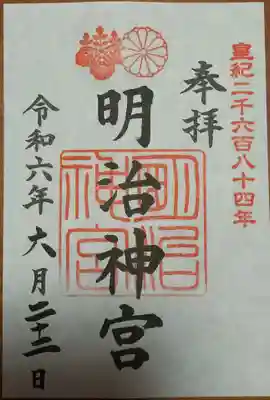 皇紀二千六百八十四年
奉拝
明治神宮
明治神宮
令和六年六月二十二日